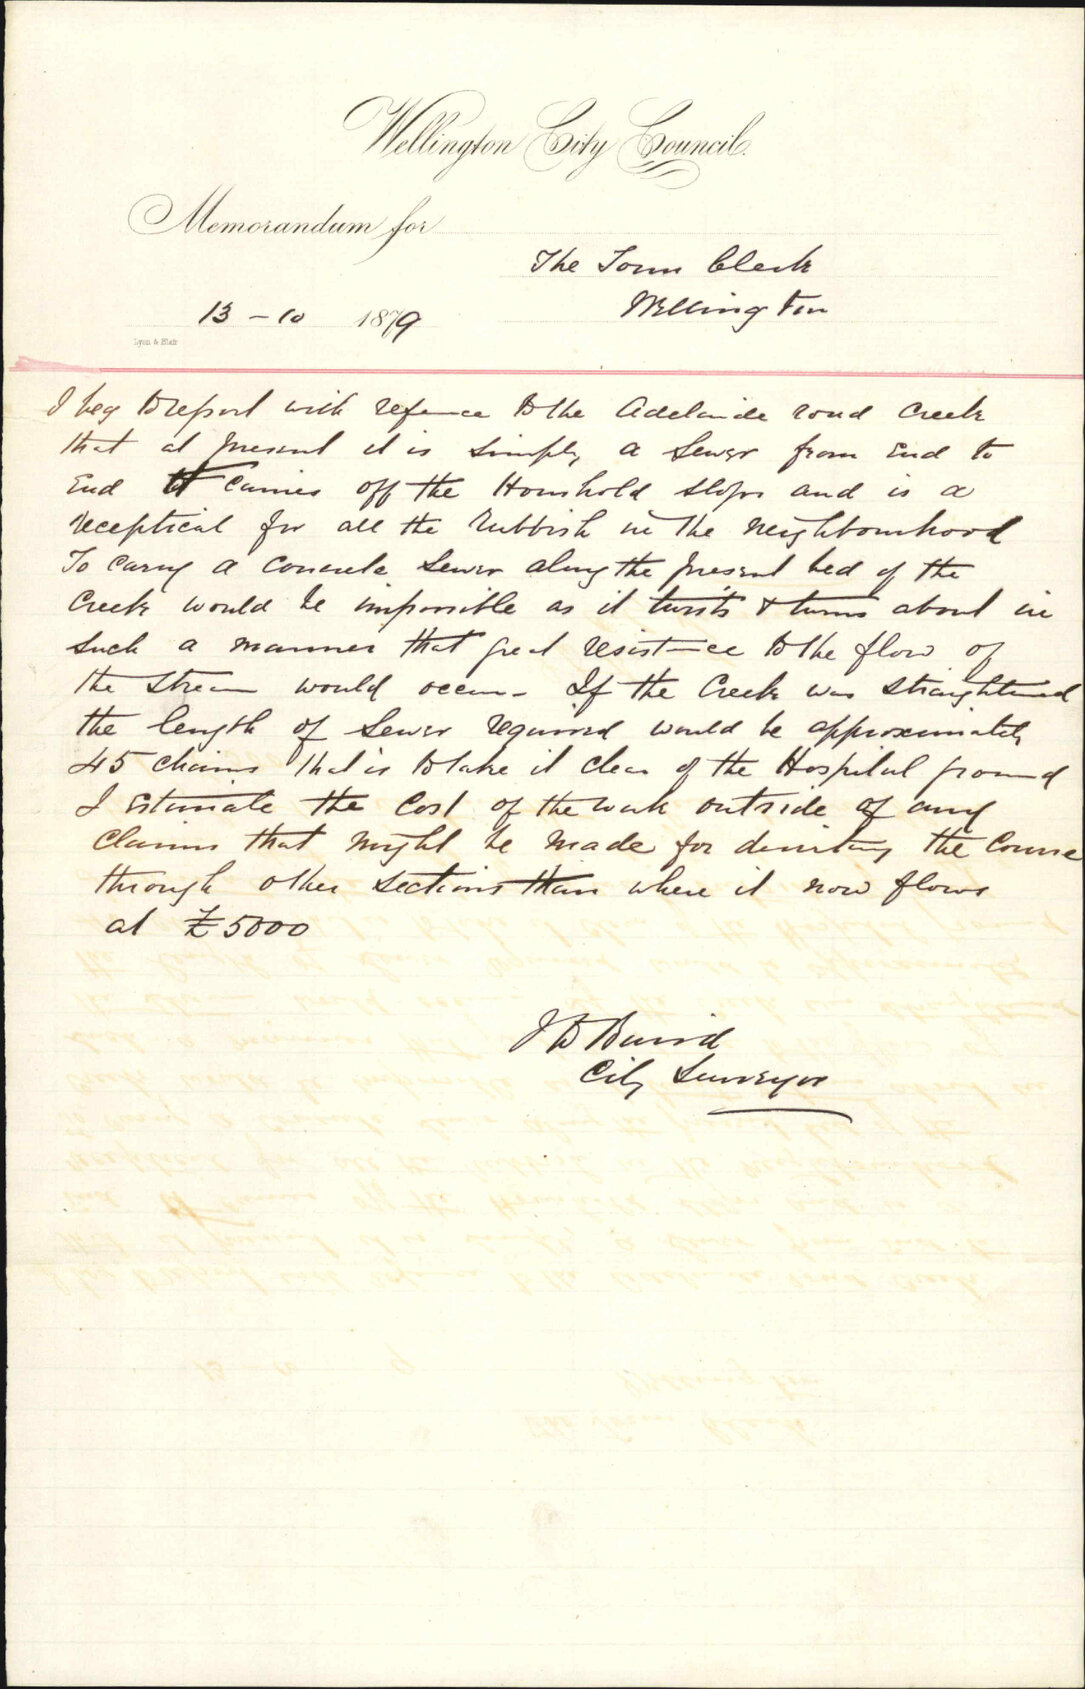 Wellington City Council.
Memorandum for
The Town Clerk
Wellington
13 - 10 1879
Lyon & Blair
I beg to report with refence to the Adelaide road Creek
that at present it is simply a sewer from end to
end It carries off the Household slops and is a
receptical for all the rubbish in the neighbourhood
To carry a concrete sewer along the present bed of the
Creek would be impossible as it twists & turns about in
such a manner that great resistance to the flow of
the stream would occur. If the Creek was straightened
the length of sewer required would be approximately
45 chains that is to take it clear of the Hospital ground
I estimate the cost of the work outside of any
claims that might be made for diverting the course
through other sections than where it now flows
at £5000
J D Baird
City Surveyor